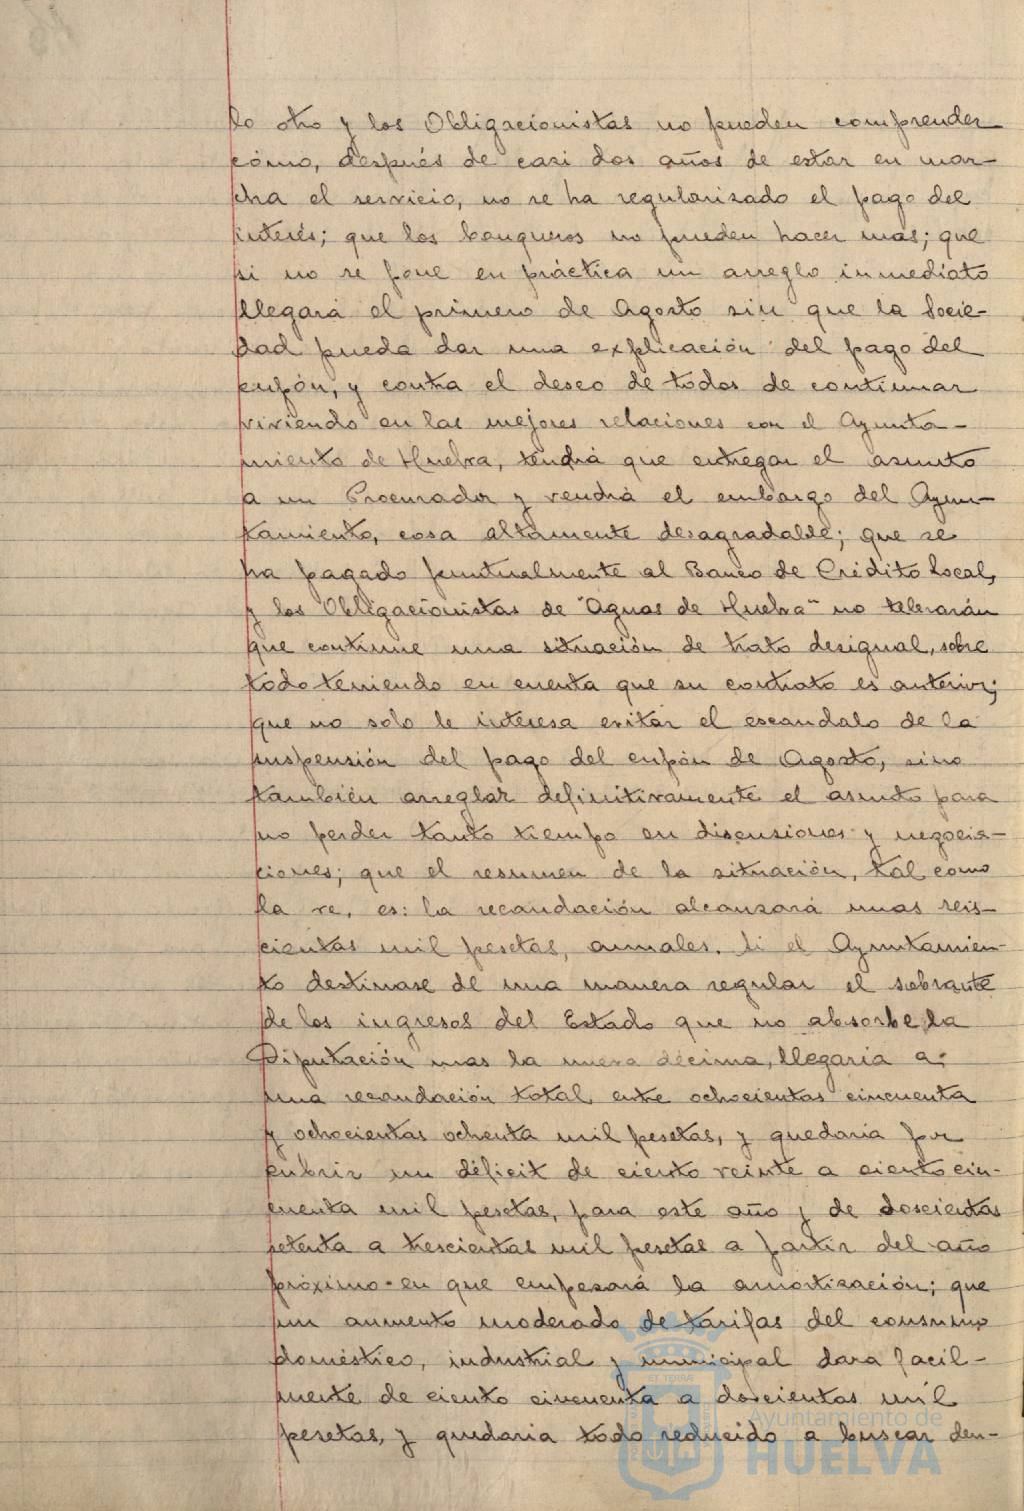 lo otro y los Obligacionistas no pueden comprender
cómo, después de casi dos años de estar en mar-
cha el servicio, no se ha regularizado el pago del
interés; que los banqueros no pueden hacer mas; que
si no se pone en práctica un arreglo inmediato
llegará el primero de Agosto sin que la Socie-
dad pueda dar una explicación del pago del
cupón, y contra el deseo de todos de continuar
viviendo en las mejores relaciones con el Ayunta-
miento de Huelva, tendrá que entregar el asunto
a un Procurador y vendrá el embargo del Ayun-
tamiento, cosa altamente desagradable; que se
ha pagado puntualmente al Banco de Crédito Local,
y los Obligacionistas de "Aguas de Huelva" no tolerarán
que continue una situación de trato desigual, sobre
todo teniendo en cuenta que su contrato es anterior;
que no solo le interesa evitar el escandalo de la
suspensión del pago del cupón de Agosto, sino
también arreglar definitivamente el asunto para
no perder tanto tiempo en discusiones y negocia-
ciones; que el resumen de la situación, tal como
la ve, es: la recaudación alcanzará unas seis-
cientas mil pesetas, anuales. Si el Ayuntamien-
to destinase de una manera regular el sobrante
de los ingresos del Estado que no absorbe, la
Diputación mas la nueva décima, llegaria a
una recaudación total entre ochocientas cincuenta
y ochocientas ochenta mil pesetas, y quedaria por
cubrir un déficit de ciento veinte a ciento cin-
cuenta mil pesetas, para este año y de doscientas
setenta a trescientas mil pesetas a partir del año
próximo en que empezará la amortización; que
un aumento moderado de tarifas del consumo
doméstico, industrial y municipal dara facil-
mente de ciento cincuenta a doscientas mil
pesetas, y quedaria todo reducido a buscar den-
Ayuntamiento de
HUELVA